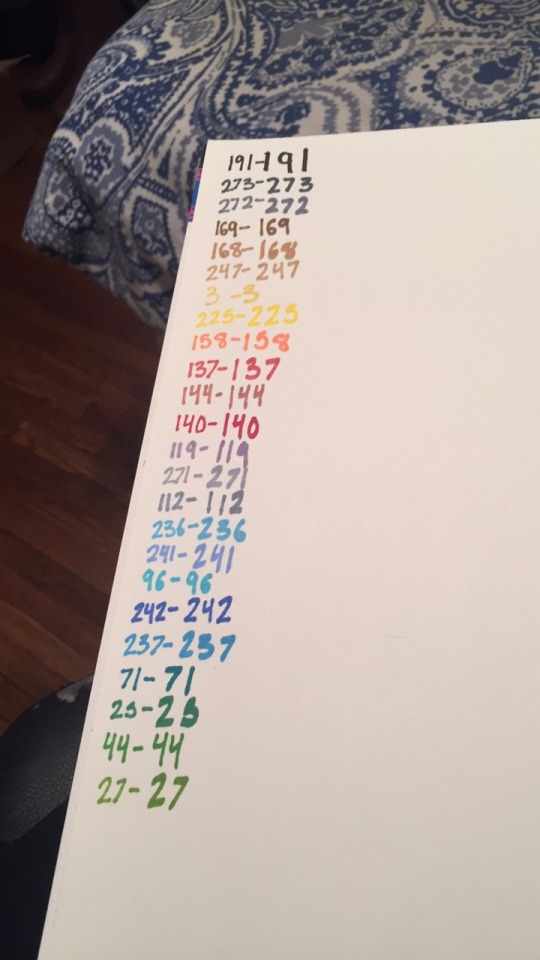 191-191
273-273
272-272
169-169
168-168
247-247
3-3
225-225
158-158
137-137
144-144
140-140
119-119
271-271
112-112
236-236
241-241
96-96
242-242
237-237
71-71
25-25
44-44
27-27